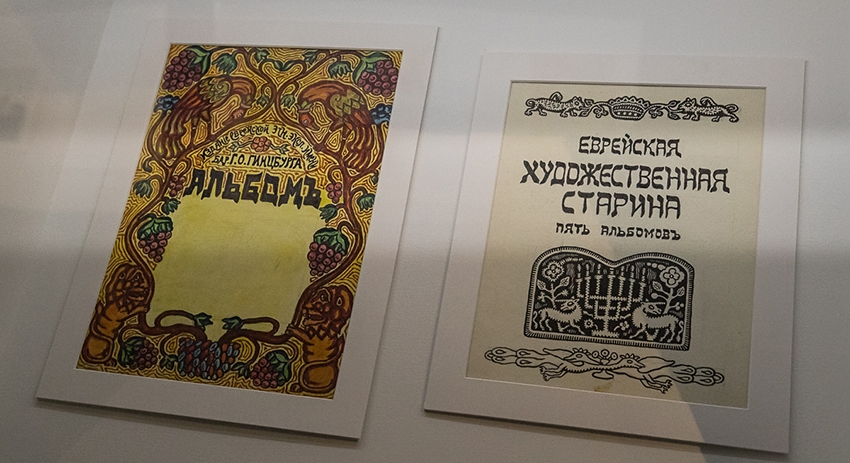 ЕВРЕЙСКОЙ
БАР. Г. О. ГИНЦБУРГА
АЛЬБОМЪ
ЕВРЕЙСКАЯ
ХУДОЖЕСТВЕННАЯ
СТАРИНА
ПЯТЬ АЛЬБОМОВЪ